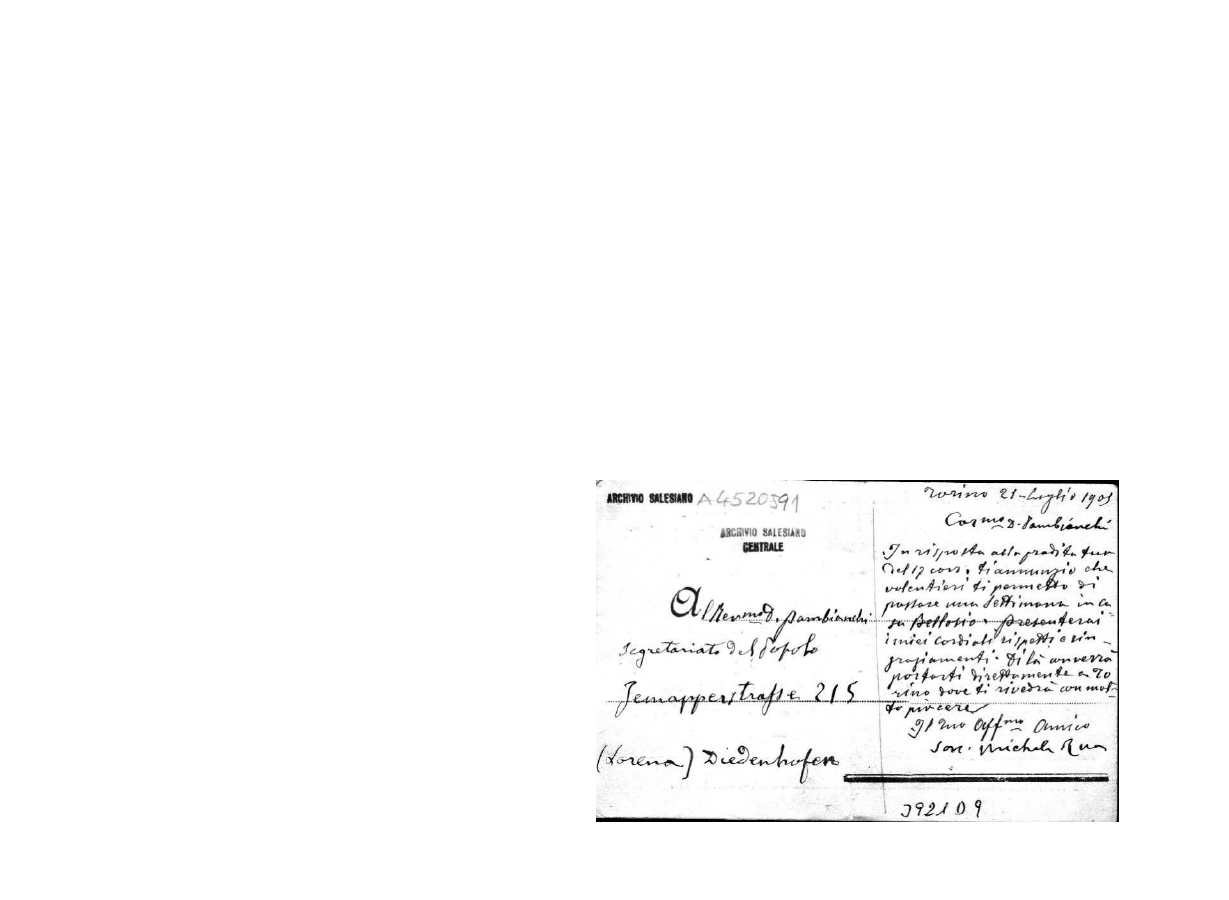 ARCHIVIO SALESIANO A4520591
ARCHIVIO SALESIANO
CENTRALE
Al Revmo D. Pambianchi
Segretariato del Popolo
Jemapperstrasse 215
(Lorena) Diedenhofen
Torino 21-Luglio 190
Carmo D. Pambianchi
In risposta alla gradita tua
del 17 corr. ti annunzio che
volentieri ti permetto di
passare una settimana in ca-
sa Bellosio. Presenterai
i miei cordiali rispetti e rin-
graziamenti. Di là converrà
portarti direttamente a To
rino dove ti rivedrà con mol-
to piacere
Il tuo Affmo Amico
Sac. Michele Rua
3921 D 9